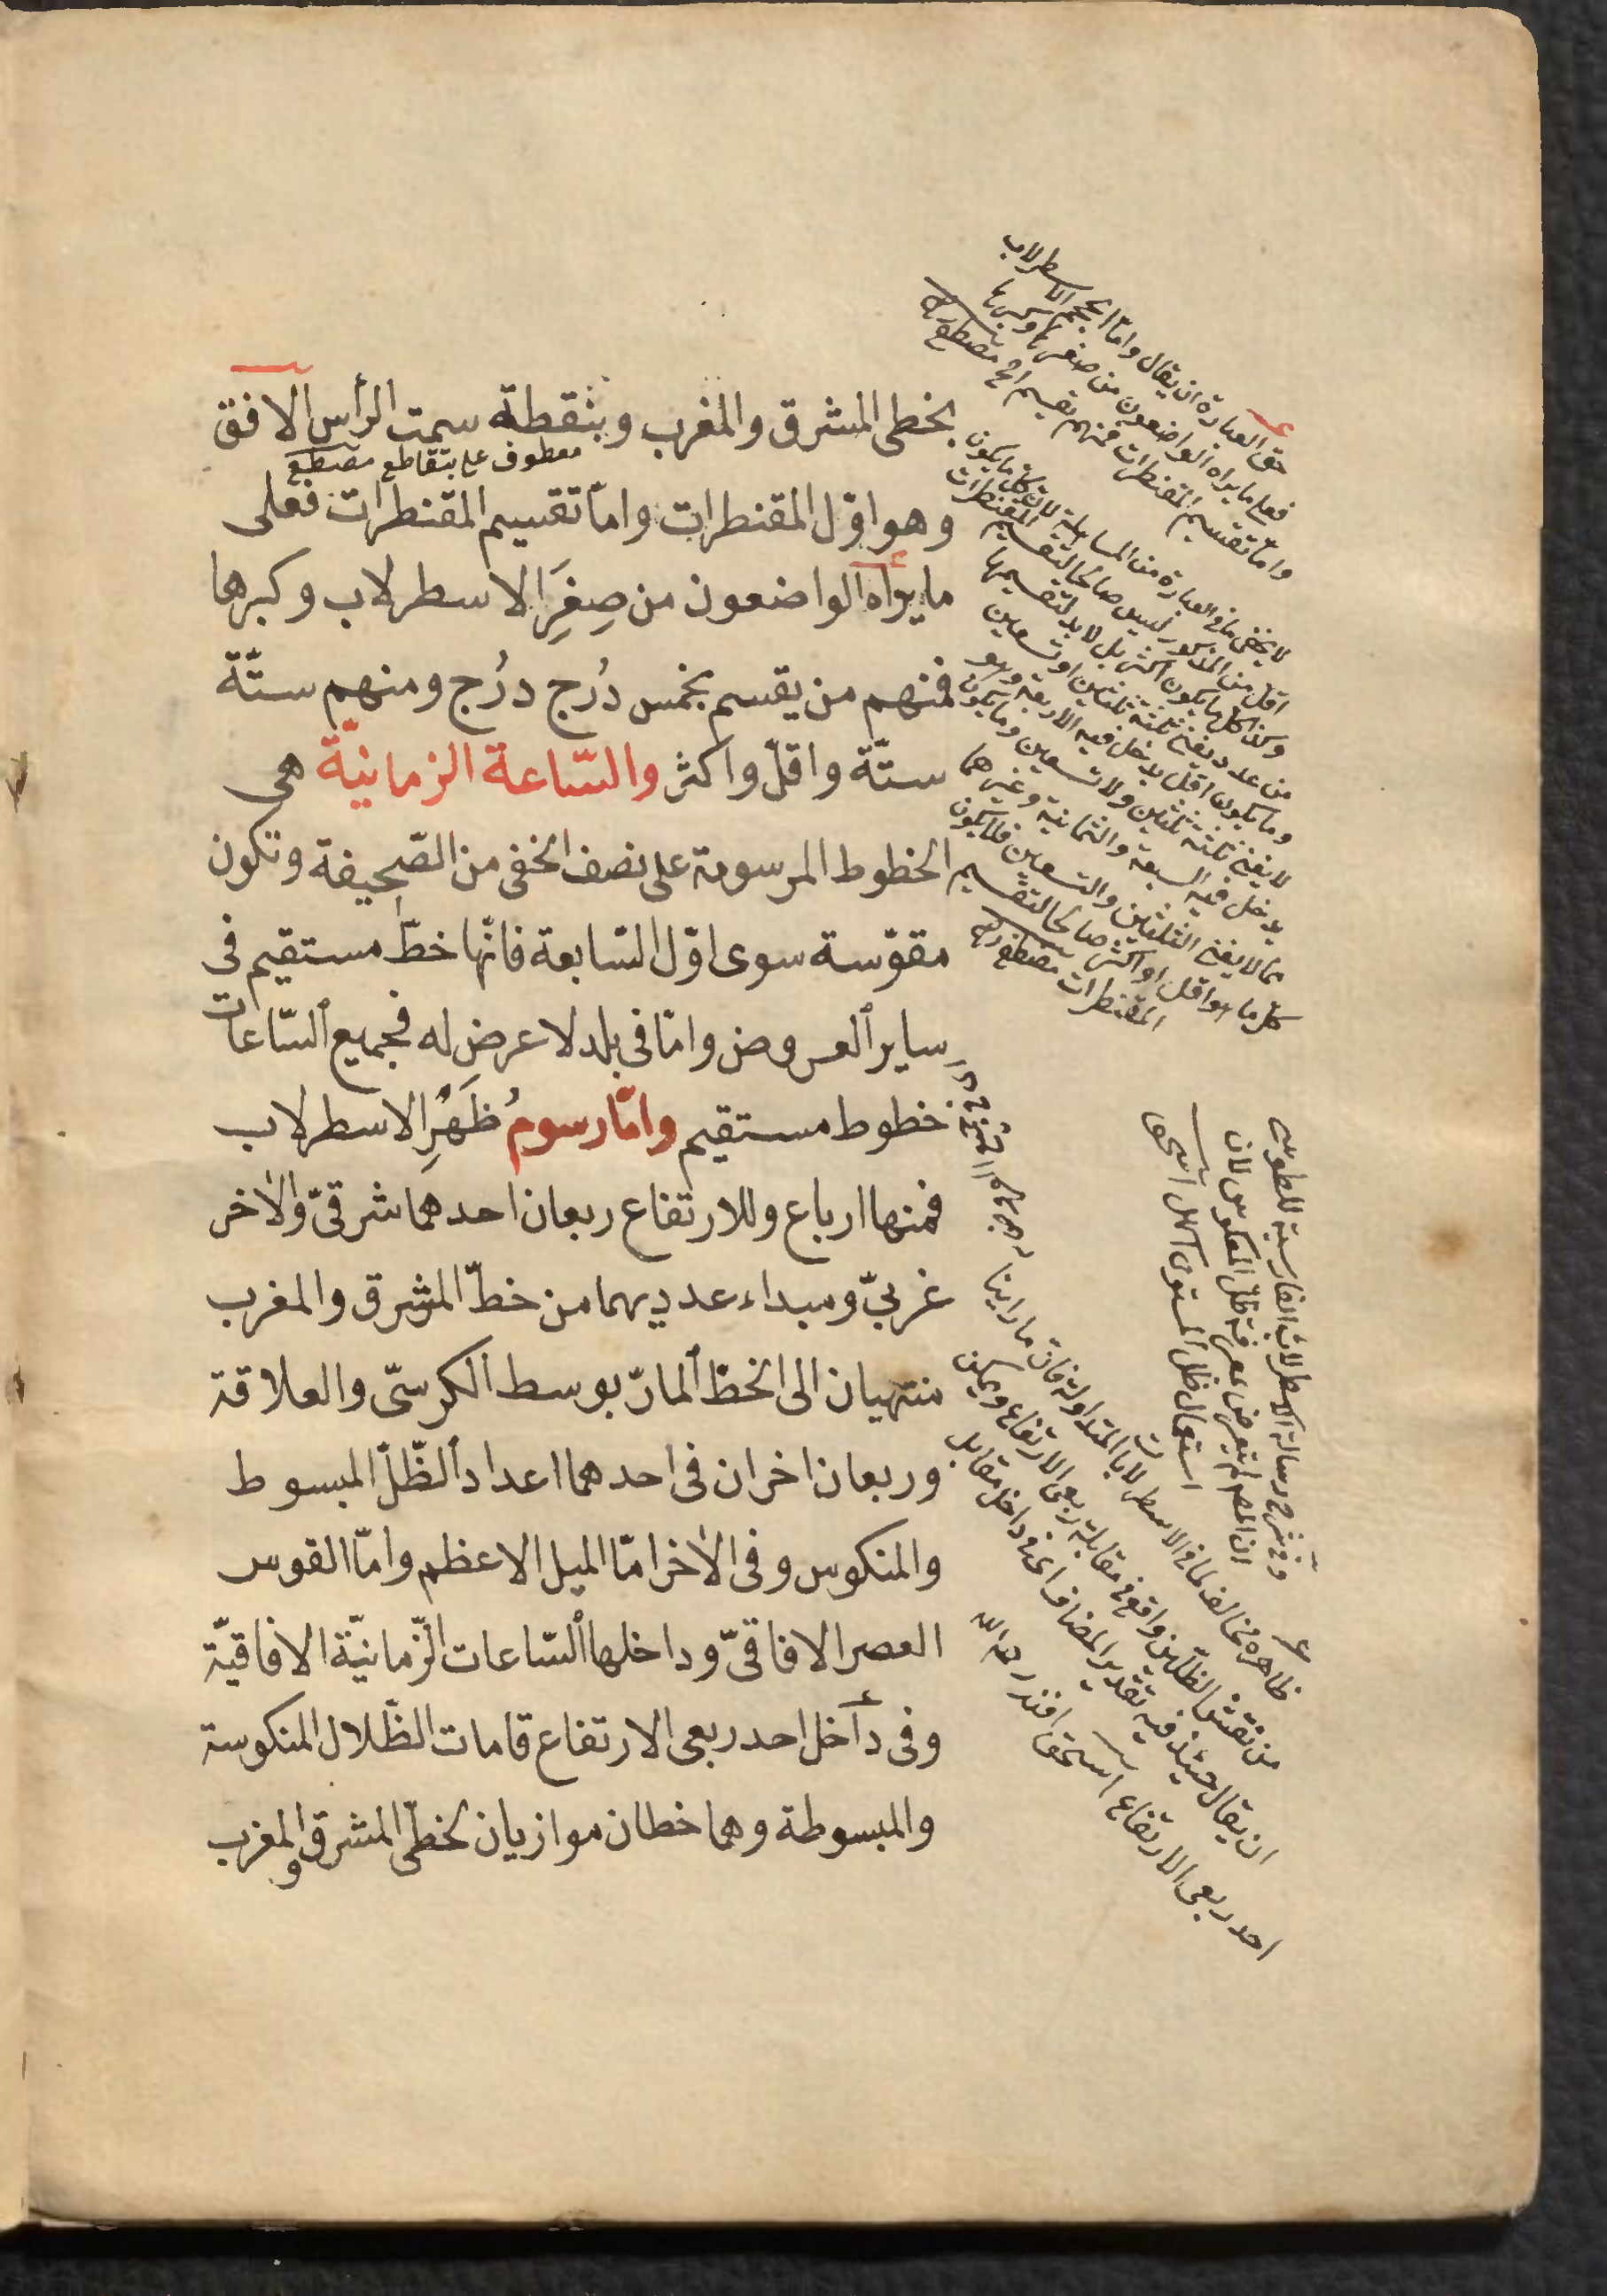 بخطى المشرق والمغرب وبنقطة سمت الرأس الافق
معطوف على بتقاطع مصطفى
وهو اوّل المقنطرات وامّا تقسيم المقنطرات فعلى
ما يراه الواضعون من صِغَرِ الاسطرلاب وكبرها
فمنهم من يقسم بخمس دُرج دُرج ومنهم ستّة
ستّة واقلّ واكثر والسّاعة الزمانيّة هى
الخطوط المرسومة على نصف الخفى من الصّحيفة وتكون
مقوّسة سوى اوّل السّابعة فانّها خطّ مستقيم فى
ساير العروض وامّا فى بلد لا عرض له فجميع السّاعات
خطوط مستقيم وامّا رسومُ ظَهْرِ الاسطرلاب
فمنها ارباع وللارتفاع ربعان احدهما شرقىّ والاخر
غربىّ ومبداء عدديهما من خطّ المشرق والمغرب
منتهيان الى الخطّ المارّ بوسط الكرسّى والعلاقة
وربعان اخران فى احدهما اعداد الظّلّ المبسوط
والمنكوس وفى الاخر امّا الميل الاعظم وامّا القوس
العصر الافاقىّ وداخلها السّاعات الزّمانيّة الافاقيّة
وفى داخل احد ربعى الارتفاع قامات الظّلال المنكوسة
والمبسوطة وهما خطان موازيان لخطّى المشرق والمغرب
حق العبارة ان يقال وامّا حجم الاسطرلاب
فعلى ما يراه الواضعون من صغرها وكبرها
وامّا تقسيم المقنطرات فمنهم من يقسم الخ مصطفى
لا يخفى ما فى العبارة من المسامحة لانّ كلّ ما يكون
اقل من المذكور ليس صالحا لتقسيم المقنطرات
وكذا كل ما يكون اكثر بل لا بد لتقسيمها
من عدد يفنى ثلثة ثلثين او تسعين
وما يكون اقل يدخل فيه الاربعة وهو
لا يفنى ثلثة ثلثين ولا تسعين وما يكون
يدخل فيه السبعة والثمانية وغيرهما
مما لا يفنى الثلثين والتسعين فلا يكون
كل ما هو اقل او اكثر صالحا لتقسيم
المقنطرات مصطفى
وفى شرح رسالة الاسطرلاب الفارسية للطوسى
ان المص لم يتعرض معرفة ظل المعكوس لان
استعمال ظل المستوى اسهل اسحق
ظاهره مخالف لما فى الاسطرلابات المتداولة فان ما راينا
من نقش الظلين واقع فى مقابلة ربعى الارتفاع ويمكن
ان يقال حينئذ فيه تقدير المضاف اى وفى داخل مقابل
احد ربعى الارتفاع اسحق افندى رحمه الله